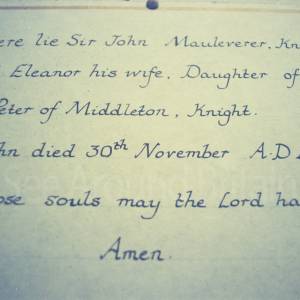 ere lie Sir John Mauleverer, Kn
Eleanor his wife, Daughter of
eter of Middleton, Knight.
hn died 30th November A.D.
ose souls may the Lord ha
Amen.